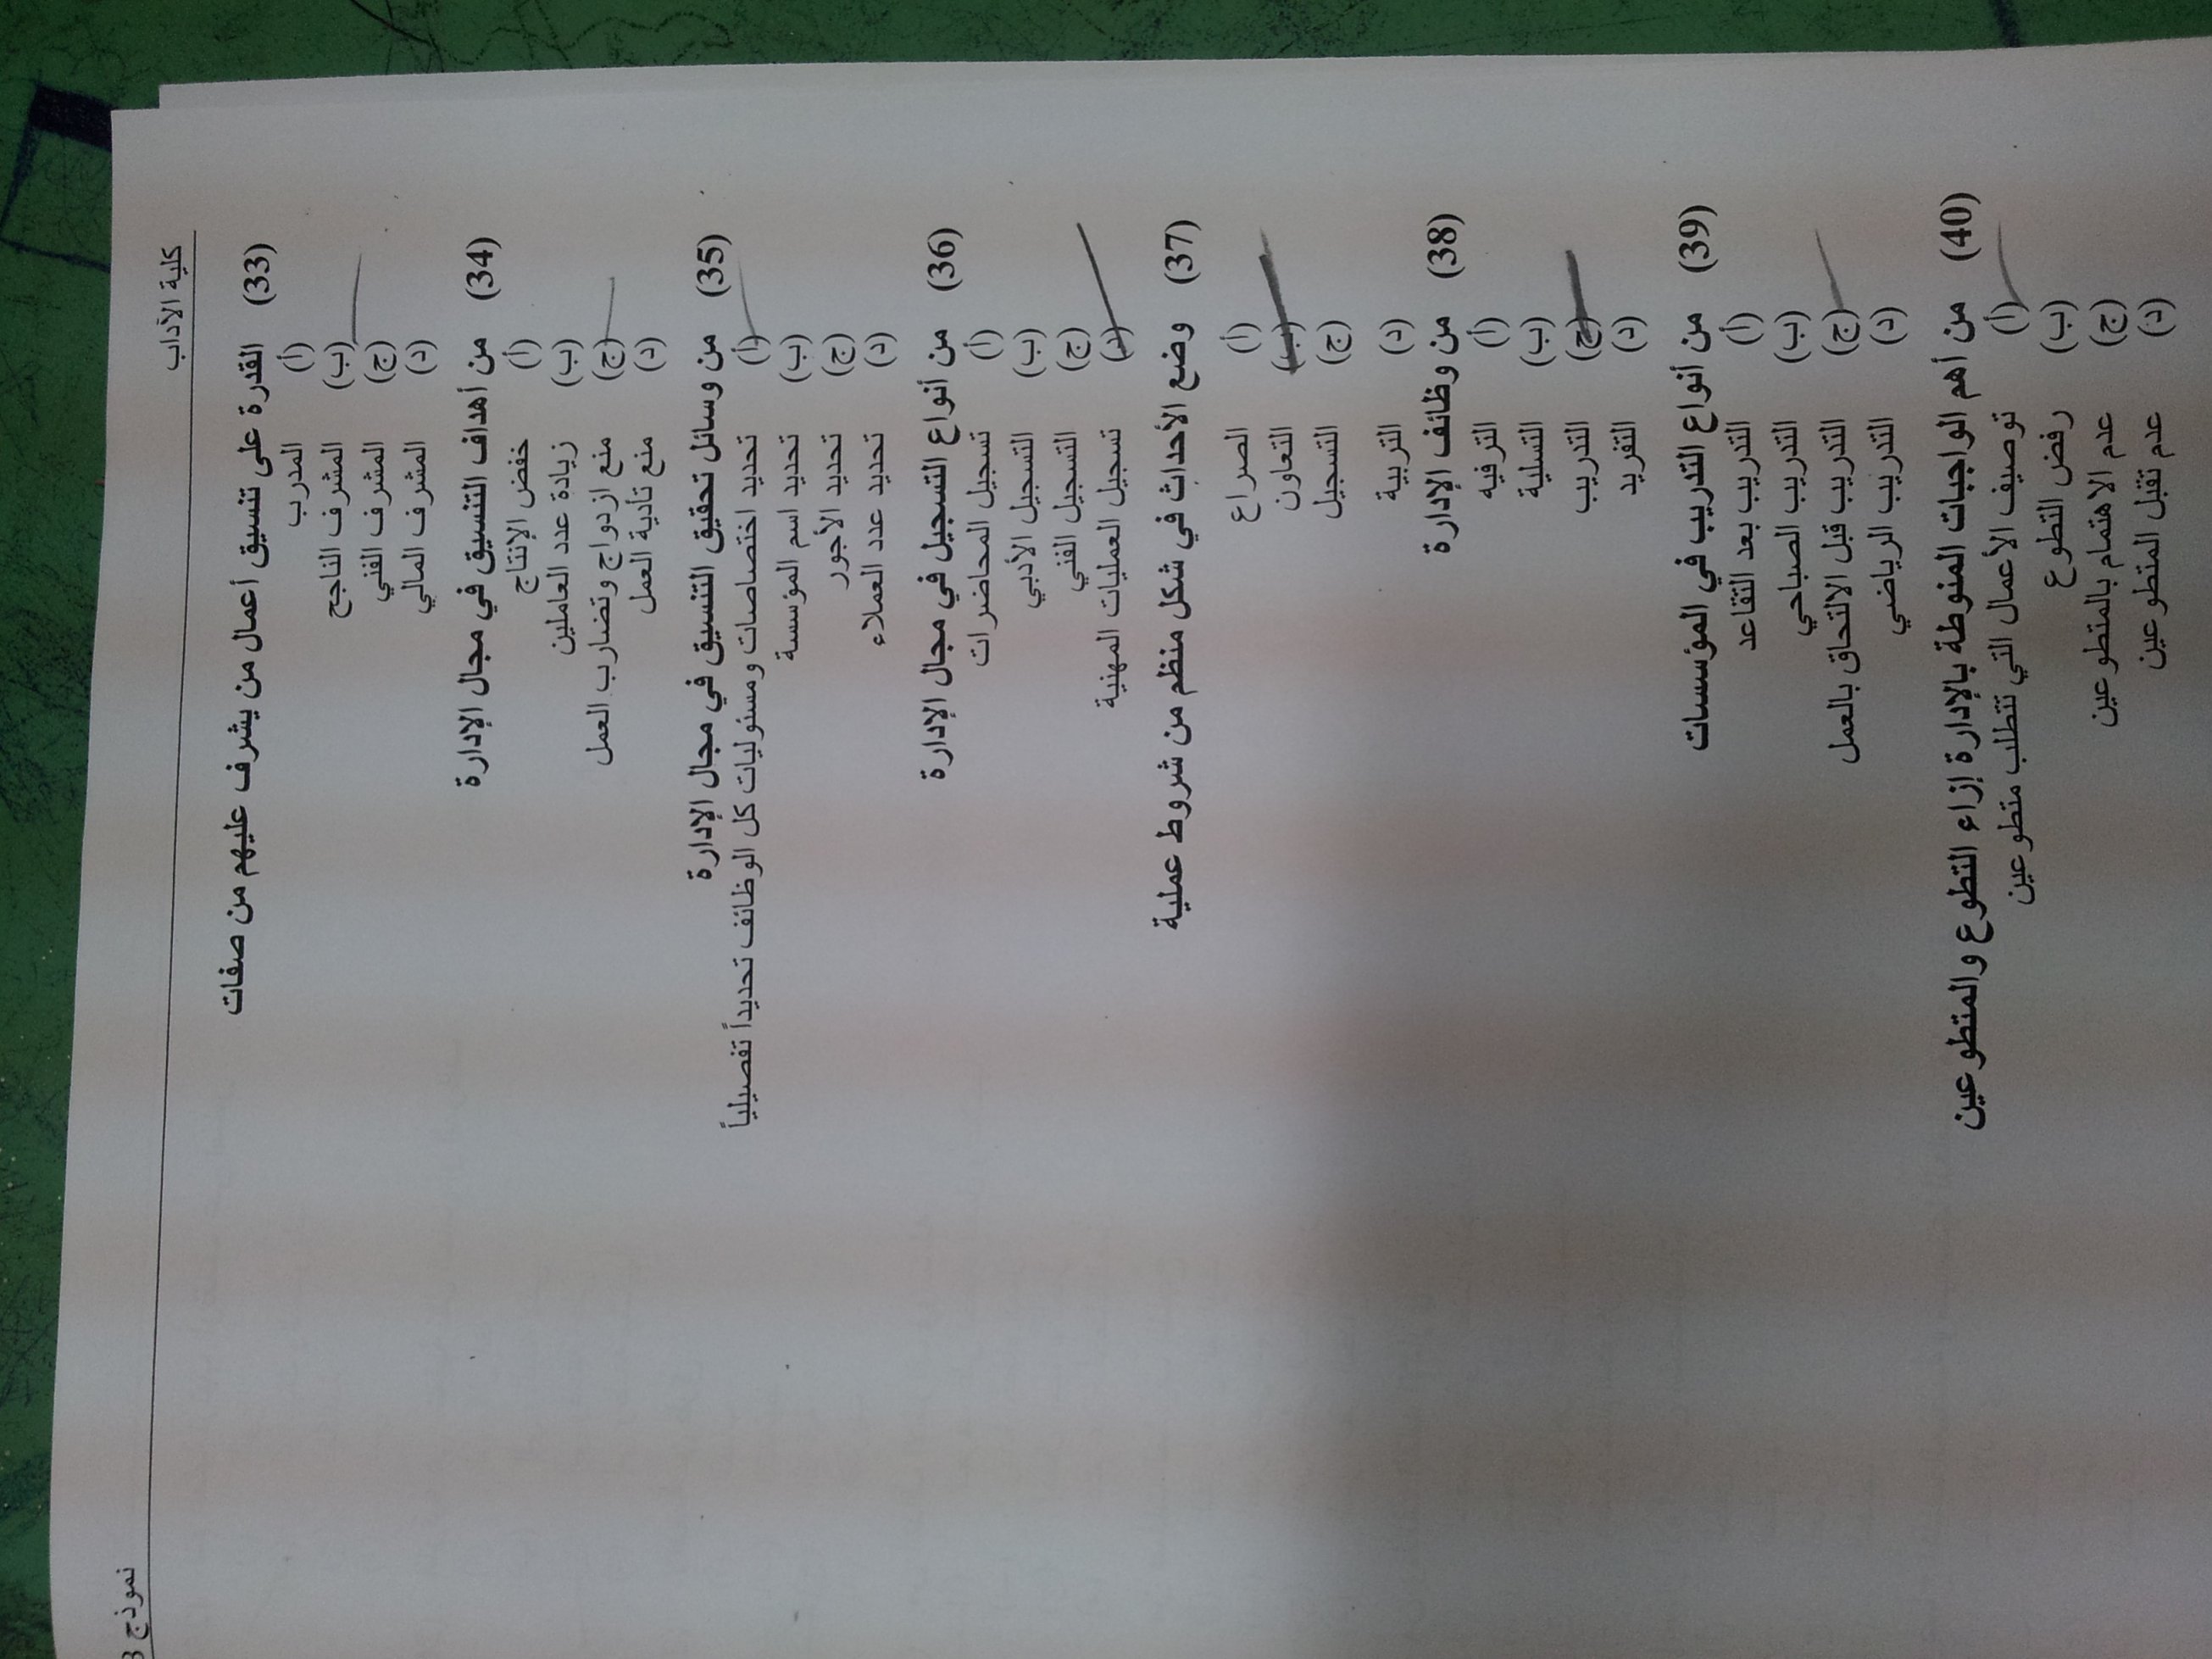 كلية الآداب
نموذج
(33) القدرة على تنسيق أعمال من يشرف عليهم من صفات
(أ) المدرب
(ب) المشرف الناجح
(ج) المشرف الفني
(د) المشرف المالي
(34) من أهداف التنسيق في مجال الإدارة
(أ) خفض الإنتاج
(ب) زيادة عدد العاملين
(ج) منع ازدواج وتضارب العمل
(د) منع تأدية العمل
(35) من وسائل تحقيق التنسيق في مجال الإدارة
(أ) تحديد اختصاصات ومسئوليات كل الوظائف تحديداً تفصيلياً
(ب) تحديد اسم المؤسسة
(ج) تحديد الأجور
(د) تحديد عدد العملاء
(36) من أنواع التسجيل في مجال الإدارة
(أ) تسجيل المحاضرات
(ب) التسجيل الأدبي
(ج) التسجيل الفني
(د) تسجيل العمليات المهنية
(37) وضع الأحداث في شكل منظم من شروط عملية
(أ) الصراع
(ب) التعاون
(ج) التسجيل
(د) التربية
(38) من وظائف الإدارة
(أ) الترفيه
(ب) التسلية
(ج) التدريب
(د) التفريد
(39) من أنواع التدريب في المؤسسات
(أ) التدريب بعد التقاعد
(ب) التدريب الصباحي
(ج) التدريب قبل الالتحاق بالعمل
(د) التدريب الرياضي
(40) من أهم الواجبات المنوطة بالإدارة إزاء التطوع والمتطوعين
(أ) توصيف الأعمال التي تتطلب متطوعين
(ب) رفض التطوع
(ج) عدم الاهتمام بالمتطوعين
(د) عدم تقبل المتطوعين